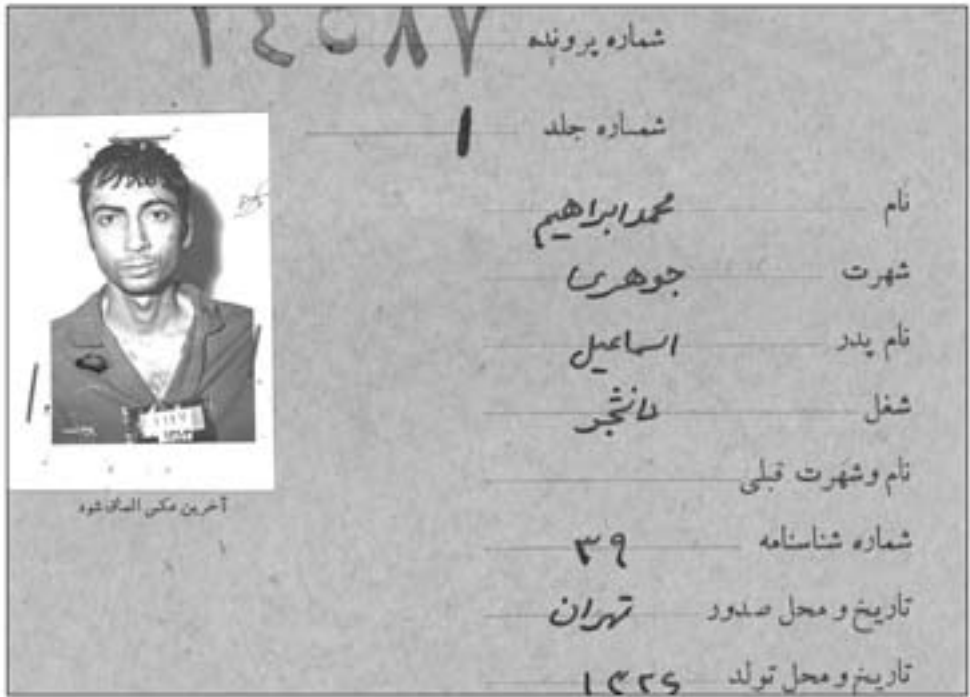 شماره پرونده ۱۴۵۸۷
شماره جلد ۱
نام محمدابراهیم
شهرت جوهری
نام پدر اسماعیل
شغل دانشجو
نام وشهرت قبلی
شماره شناسنامه ۳۹
تاریخ و محل صدور تهران
تاریخ و محل تولد ۱۳۲۶
آخرین عکس الصاق شود